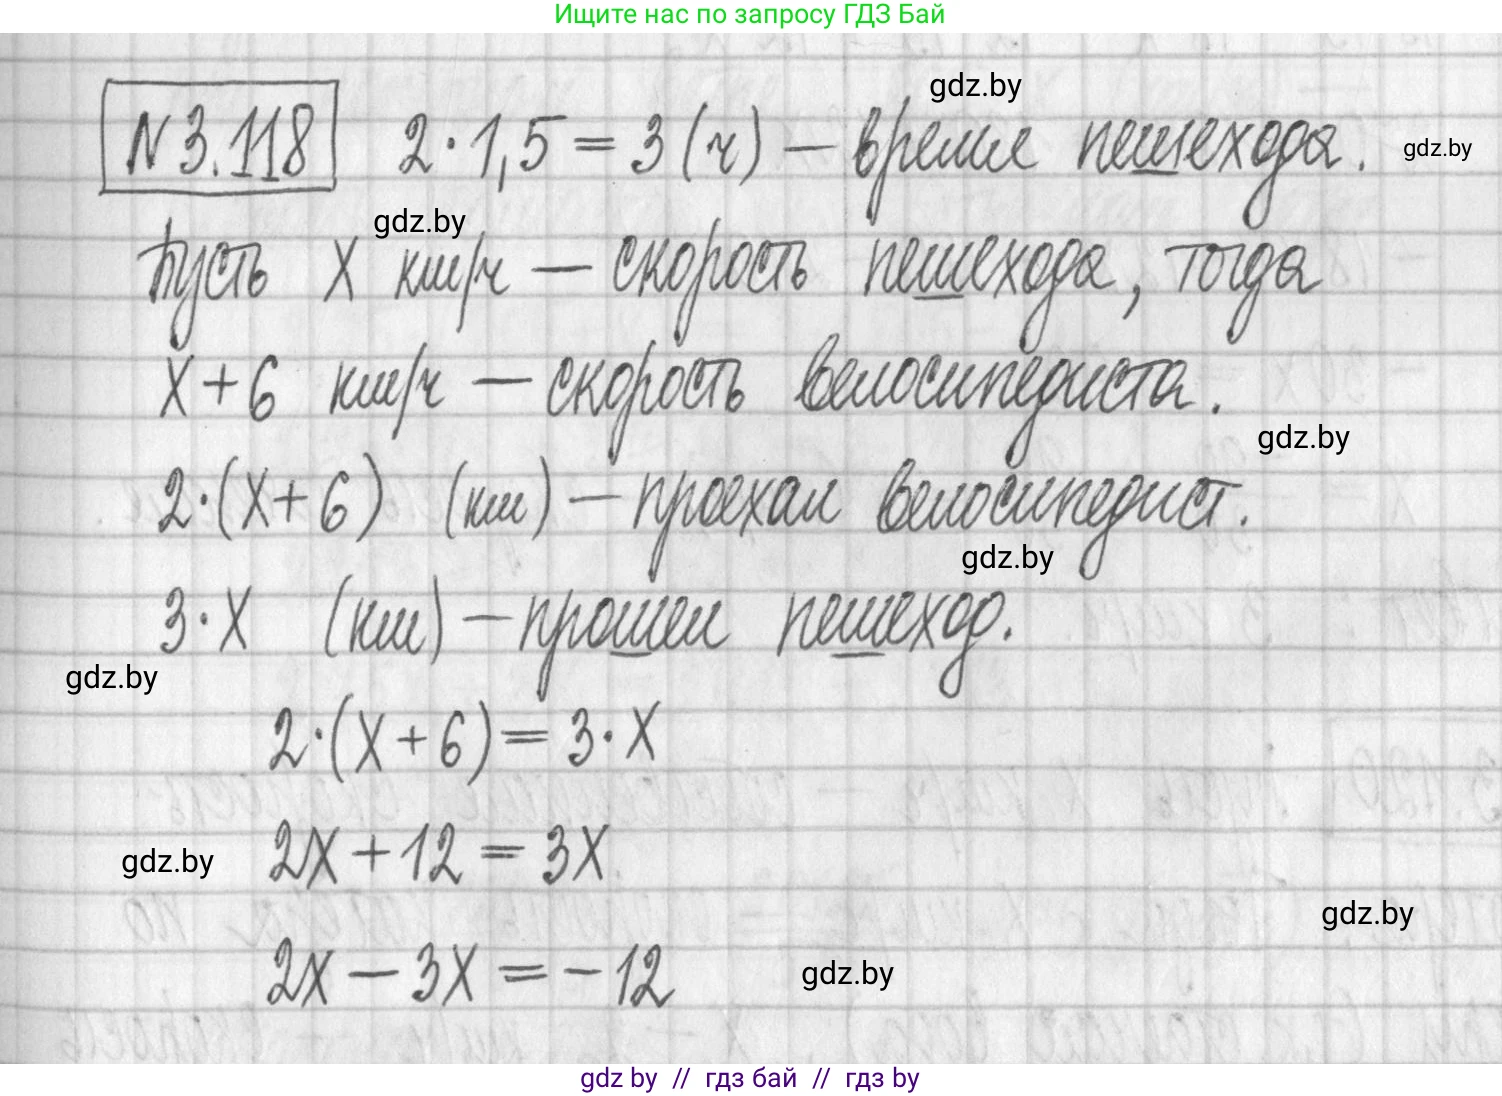 Ищите нас по запросу ГДЗ Бай
gdz.by
№3.118 2·1,5=3(ч) — время пешехода.
gdz.by
gdz.by
Пусть X км/ч — скорость пешехода, тогда
X+6 км/ч — скорость велосипедиста.
gdz.by
2·(X+6) (км) — проехал велосипедист.
gdz.by
3·X (км) — прошел пешеход.
gdz.by
2·(X+6)=3·X
2X+12=3X
gdz.by
gdz.by
2X-3X=-12
gdz.by
gdz by // гдз бай // гдз by